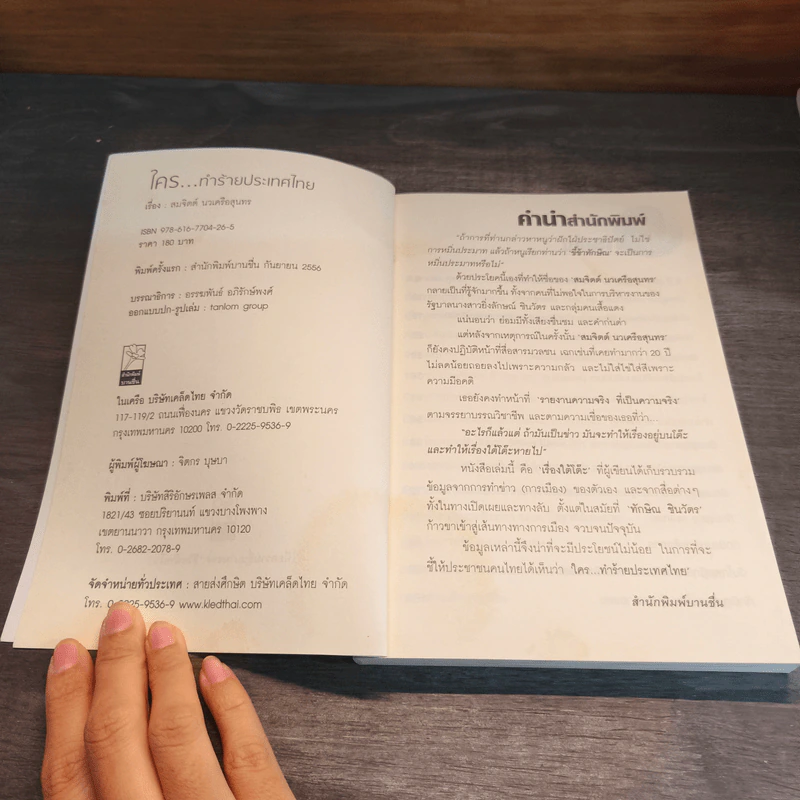 ใคร...ทำร้ายประเทศไทย
เรื่อง : สมจิตต์ นวเครือสุนทร
ISBN 978-616-7704-26-5
ราคา 180 บาท
พิมพ์ครั้งแรก : สำนักพิมพ์บานชื่น กันยายน 2556
บรรณาธิการ : อรรฆพันธ์ อภิรักษ์พงศ์
ออกแบบปก-รูปเล่ม : tanlom group
สำนักพิมพ์
บานชื่น
ในเครือ บริษัทเคล็ดไทย จำกัด
117-119/2 ถนนเฟื่องนคร แขวงวัดราชบพิธ เขตพระนคร
กรุงเทพมหานคร 10200 โทร. 0-2225-9536-9
ผู้พิมพ์ผู้โฆษณา : จิตกร บุษบา
พิมพ์ที่ : บริษัทสิริอักษรเพลส จำกัด
1821/43 ซอยปริยานนท์ แขวงบางโพงพาง
เขตยานนาวา กรุงเทพมหานคร 10120
โทร. 0-2682-2078-9
จัดจำหน่ายทั่วประเทศ : สายส่งศึกษิต บริษัทเคล็ดไทย จำกัด
โทร. 0-2225-9536-9 www.kledthai.com
คำนำสำนักพิมพ์
"ถ้าการที่ท่านกล่าวหาหนูว่าฝักใฝ่ประชาธิปัตย์ ไม่ใช่
การหมิ่นประมาท แล้วถ้าหนูเรียกท่านว่า 'ขี้ข้าทักษิณ' จะเป็นการ
หมิ่นประมาทหรือไม่"
ด้วยประโยคนี้เองที่ทำให้ชื่อของ 'สมจิตต์ นวเครือสุนทร'
กลายเป็นที่รู้จักมากขึ้น ทั้งจากคนที่ไม่พอใจในการบริหารงานของ
รัฐบาลนางสาวยิ่งลักษณ์ ชินวัตร และกลุ่มคนเสื้อแดง
แน่นอนว่า ย่อมมีทั้งเสียงชื่นชม และคำก่นด่า
แต่หลังจากเหตุการณ์ในครั้งนั้น 'สมจิตต์ นวเครือสุนทร'
ก็ยังคงปฏิบัติหน้าที่สื่อสารมวลชน เฉกเช่นที่เคยทำมากว่า 20 ปี
ไม่ลดน้อยถอยลงไปเพราะความกลัว และไม่ใส่ไข่ใส่สีเพราะ
ความมีอคติ
เธอยังคงทำหน้าที่ 'รายงานความจริง ที่เป็นความจริง'
ตามจรรยาบรรณวิชาชีพ และตามความเชื่อของเธอที่ว่า...
"อะไรก็แล้วแต่ ถ้ามันเป็นข่าว มันจะทำให้เรื่องอยู่บนโต๊ะ
และทำให้เรื่องใต้โต๊ะหายไป"
หนังสือเล่มนี้ คือ 'เรื่องใต้โต๊ะ' ที่ผู้เขียนได้เก็บรวบรวม
ข้อมูลจากการทำข่าว (การเมือง) ของตัวเอง และจากสื่อต่างๆ
ทั้งในทางเปิดเผยและทางลับ ตั้งแต่ในสมัยที่ 'ทักษิณ ชินวัตร'
ก้าวขาเข้าสู่เส้นทางทางการเมือง จวบจนปัจจุบัน
ข้อมูลเหล่านี้จึงน่าที่จะมีประโยชน์ไม่น้อย ในการที่จะ
ชี้ให้ประชาชนคนไทยได้เห็นว่า 'ใคร...ทำร้ายประเทศไทย'
สำนักพิมพ์บานชื่น